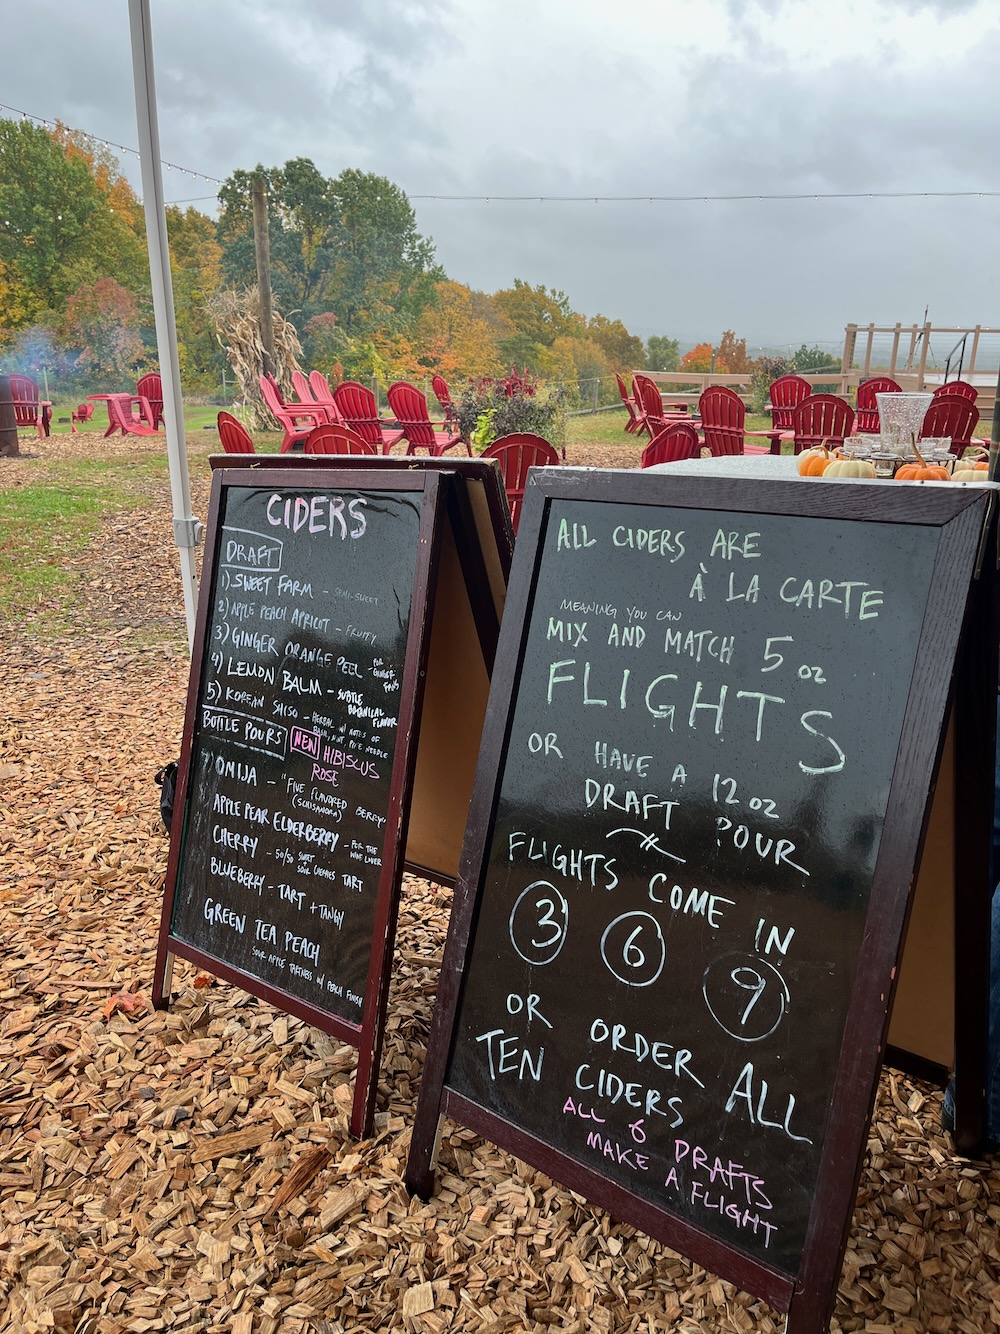 CIDERS
DRAFT
1) SWEET FARM - SEMI-SWEET
2) APPLE PEACH APRICOT - FRUITY
3) GINGER ORANGE PEEL - FOR GINGER FANS
4) LEMON BALM - SUBTLE BOTANICAL FLAVOR
5) KOREAN SHISO - HERBAL W/ NOTES OF
BASIL, MINT, PINE NEEDLE
BOTTLE POURS
NEW HIBISCUS
ROSE
OMIJA - "FIVE FLAVORED BERRY"
(SCHISANDRA)
APPLE PEAR ELDERBERRY - FOR THE WINE LOVER
CHERRY - 50/50 SWEET SOUR CHERRIES TART
BLUEBERRY - TART + TANGY
GREEN TEA PEACH
SOUR APPLE TARTNESS W/ PEACH FINISH
ALL CIDERS ARE
À LA CARTE
MEANING YOU CAN
MIX AND MATCH 5 OZ
FLIGHTS
OR HAVE A 12 OZ
DRAFT POUR
FLIGHTS COME IN
3 6 9
OR ORDER ALL
TEN CIDERS
ALL 6 DRAFTS
MAKE A FLIGHT